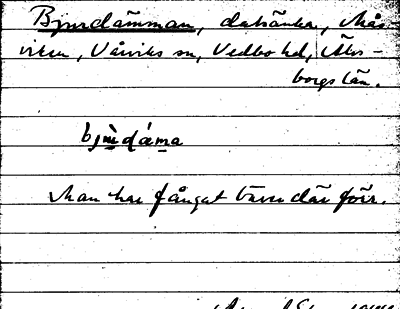 Bjurdämman, dalsänka, Mås-
viken, Vårviks sn, Vedbo hd, Älvs-
borgs län.
Man har fångat bävrar där förr.